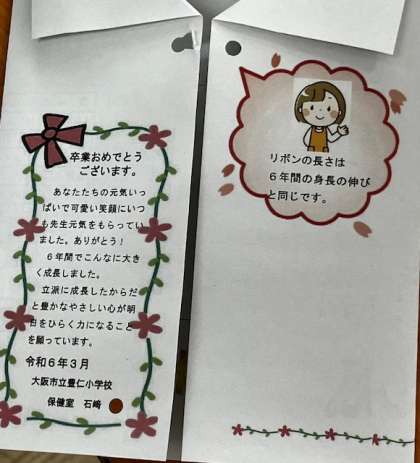 卒業おめでとう
ございます。
あなたたちの元気いっ
ぱいで可愛い笑顔にいつ
も先生元気をもらってい
ました。ありがとう！
６年間でこんなに大き
く成長しました。
立派に成長したからだ
と豊かなやさしい心が明
日をひらく力になること
を願っています。
令和６年３月
大阪市立豊仁小学校
保健室　石崎
リボンの長さは
６年間の身長の伸び
と同じです。